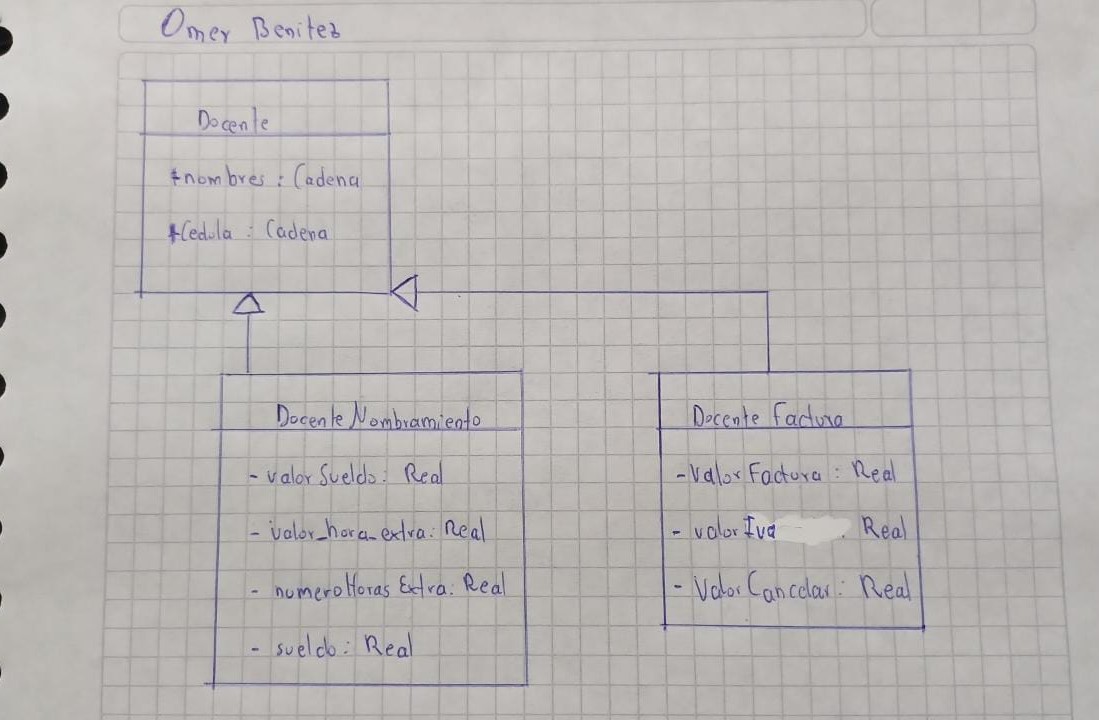 Omer Benitez
Docente
+nombres : Cadena
+Cedula : Cadena
Docente Nombramiento
- valorSueldo: Real
- valor_hora_extra: Real
- numeroHoras Extra: Real
- sueldo: Real
Docente Factura
- Valor Factura : Real
- valor Iva . Real
- Valor Cancelar : Real